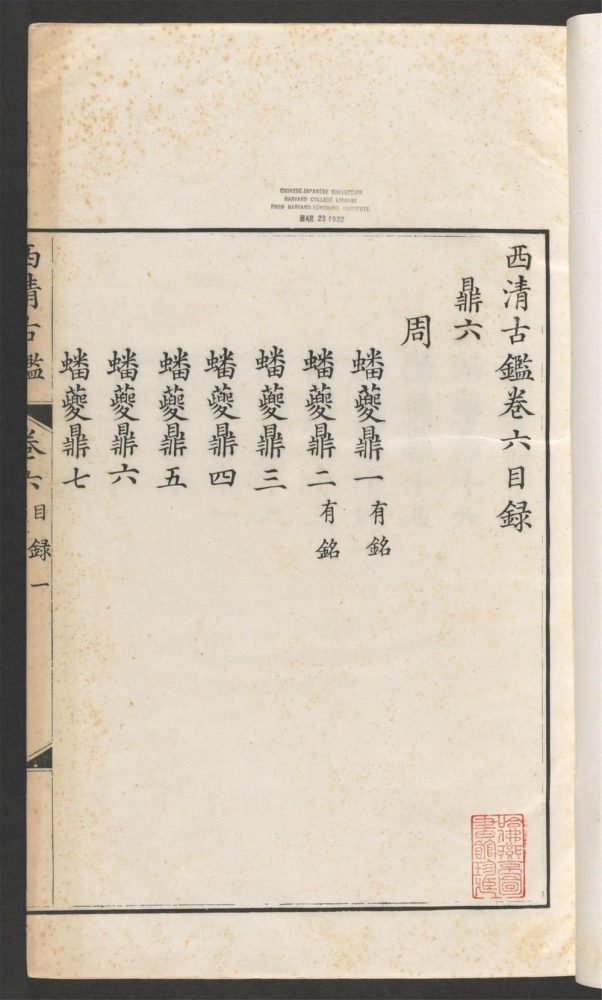 CHINESE-JAPANESE COLLECTION
HARVARD COLLEGE LIBRARY
FROM HARVARD-YENCHING INSTITUTE
MAR 23 1932
西清古鑑卷六目録
鼎六
周
蟠夔鼎一 有銘
蟠夔鼎二 有銘
蟠夔鼎三
蟠夔鼎四
蟠夔鼎五
蟠夔鼎六
蟠夔鼎七
西清古鑑 卷六 目録 一
哈佛燕京圖書館珍藏